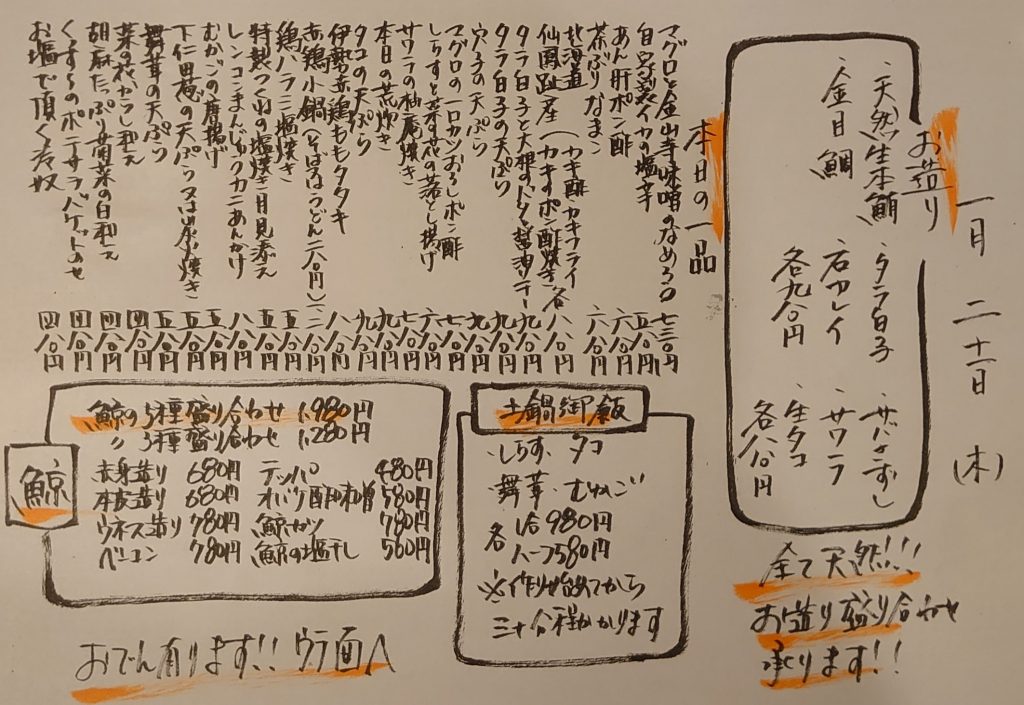 一月 二十一日 (木)
お造り
・天然生本鮪
・金目鯛
・タラ白子
・石カレイ
各九八〇円
・サバきずし
・サワラ
・生タコ
各八八〇円
全て天然!!!
お造り盛り合わせ
承ります!!
本日の一品
マグロと金山寺味噌のなめろう 七三〇円
自家製イカの塩辛 五八〇円
あん肝ポン酢 六八〇円
茶ぶりなまこ 六八〇円
北海道
仙鳳趾産 (カキ酢・カキフライ
カキのポン酢焼き 各八八〇円
タラ白子と大根のバター醤油ソテー 九八〇円
タラ白子の天ぷら 九八〇円
穴子の天ぷら 九八〇円
マグロの一口カツおろしポン酢 七八〇円
しらすと菜の花の落とし揚げ 六八〇円
サワラの柚庵焼き 七八〇円
本日の荒炊き 九八〇円
タコの天ぷら 九八〇円
伊勢赤鶏ももタタキ 八八〇円
赤鶏小鍋(そば又はうどん二八〇円)
鶏ハラミ塩焼き 五八〇円
特製つくねの塩焼き月見添え 五八〇円
レンコンまんじゅうカニあんかけ 八八〇円
むかごの唐揚げ 五八〇円
下仁田葱の天ぷら又は炭火焼き 五八〇円
舞茸の天ぷら 五八〇円
菜の花カラシ和え 四八〇円
胡麻たっぷり菊菜の白和え 四八〇円
くずし のポテサラバケットのせ 四八〇円
お塩で頂く冷奴 四八〇円
土鍋御飯
・しらす・タコ
・舞茸・むかご
各 1合980円
ハーフ580円
※作り始めてから
三十分程かかります
鯨
鯨の5種盛り合わせ 1,980円
〃 3種盛り合わせ 1,280円
赤身造り 680円 テッパ 480円
本皮造り 680円 オバケ酢味噌 580円
ウネス造り 780円 鯨カツ 780円
ベーコン 780円 鯨の塩干し 560円
おでん有ります!! ウラ面へ